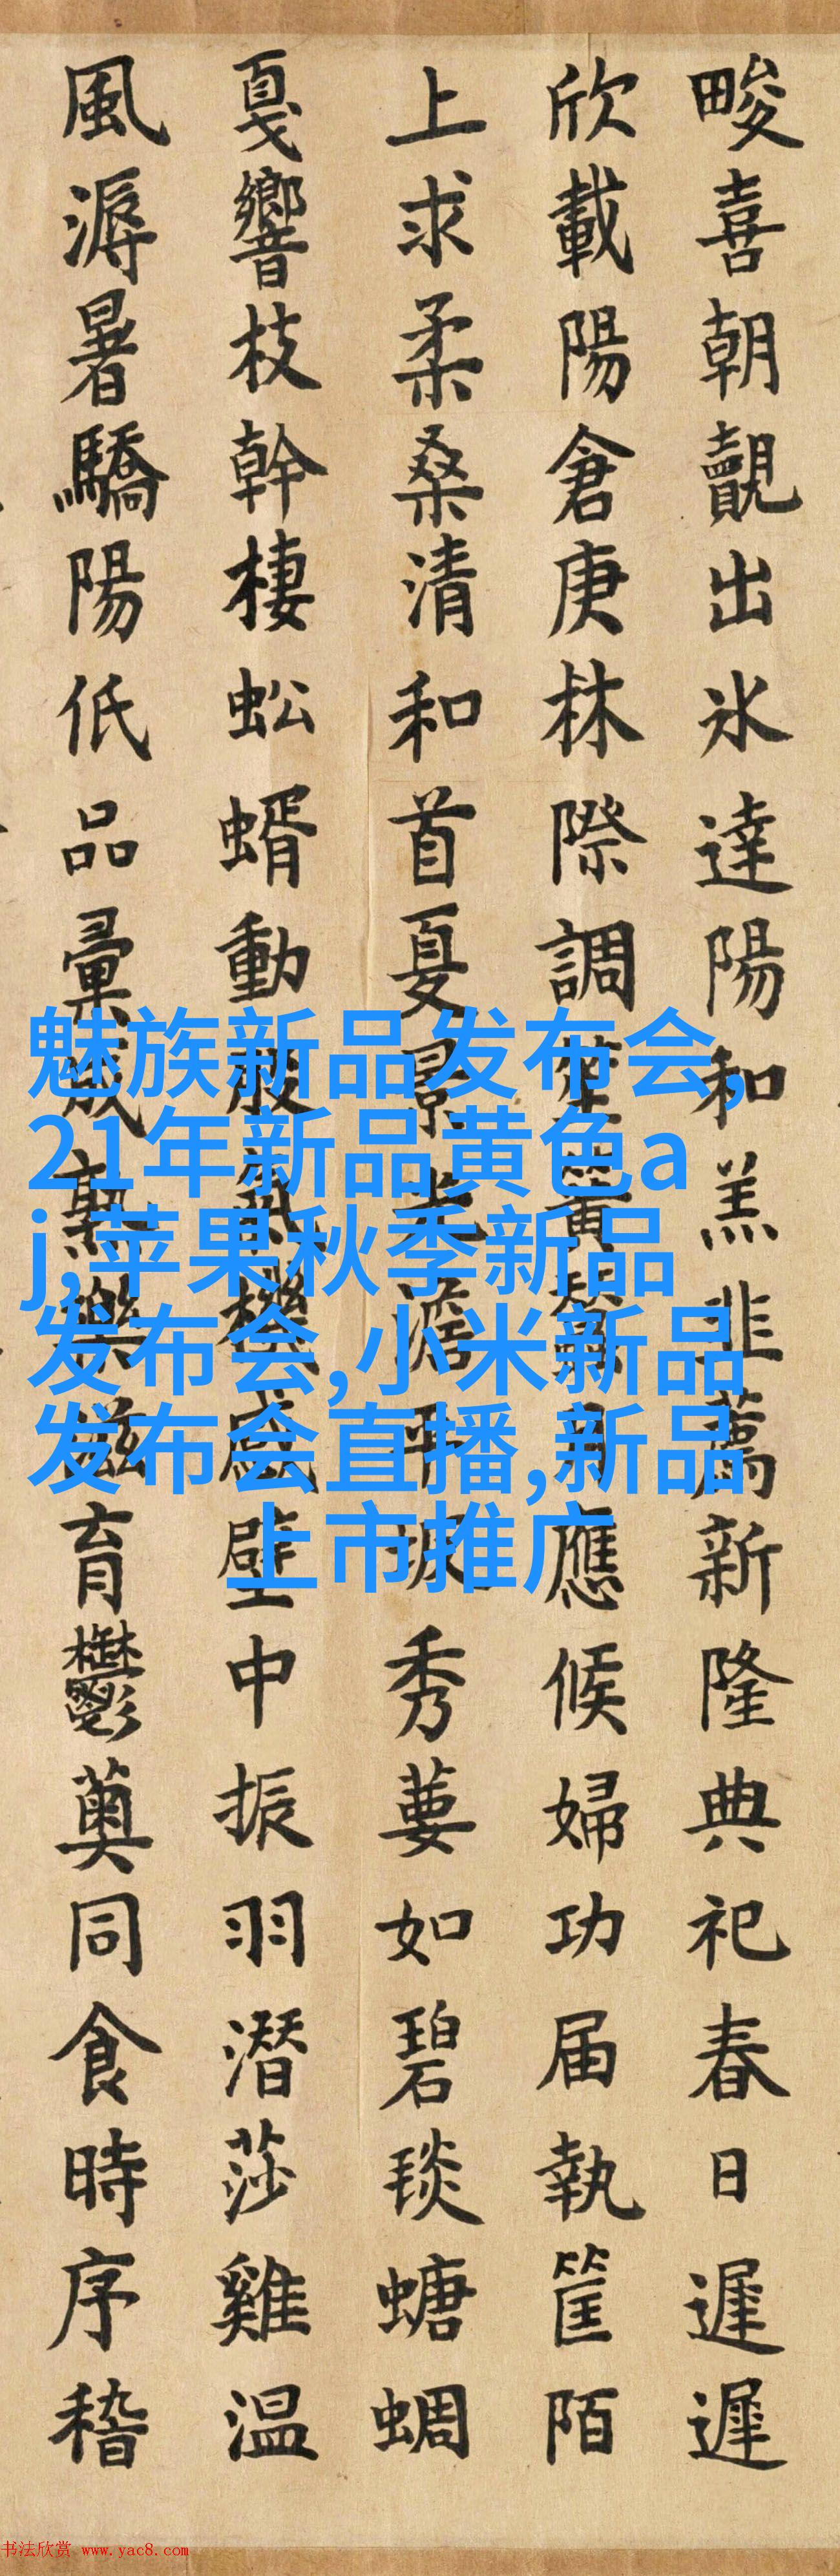 畯喜朝覿出氷達陽和羔韭薦新隆典祀春日遲遲
欣載陽倉庚林際調笙簧月應候婦功届執筐陌
上求柔桑清和首夏景光澹平坡秀葽如碧琰螗蜩
戛響枝幹棲蚣蝑動股機感壁中振羽潛莎雞温
風溽暑驕陽低品彙咸熟樂滋育鬱薁同食時序稽
魅族新品发布会,
21年新品黄色a
j,苹果秋季新品
发布会,小米新品
发布会直播,新品
上市推广
书法欣赏 www.yac8.com